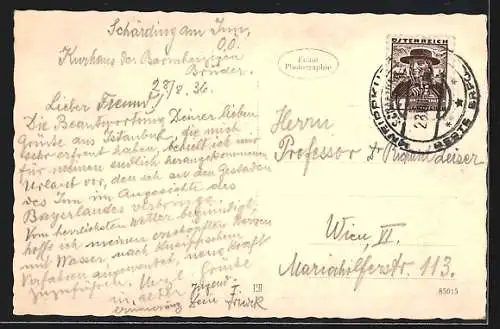 Schärding am Inn,
O.Ö.
Kurhaus der Barmherzigen
Brüder.
28/8. 36.
Lieber Freund!
Die Beantwortung Deiner lieben
Grüße aus Istanbul, die mich
sehr erfreut haben, behielt ich mir
für meinen endlich herangekommenen
Urlaub vor, den ich an den Gestaden
des Inn im Angesichte des
Bayerlandes verbringe.
Vom herrlichsten Wetter begünstigt,
hoffe ich meinem erschöpften Herzen
mit Wasser, nach Kneippschem
Verfahren angewendet, neue Kraft
zuzuführen. Herzl. Grüße
in alter Jugend
erinnerung Dein
Echte
Photographie
ÖSTERREICH
Herrn
Professor Dr. Leiser
Wien, VI.
Mariahilferstr. 113.
85015